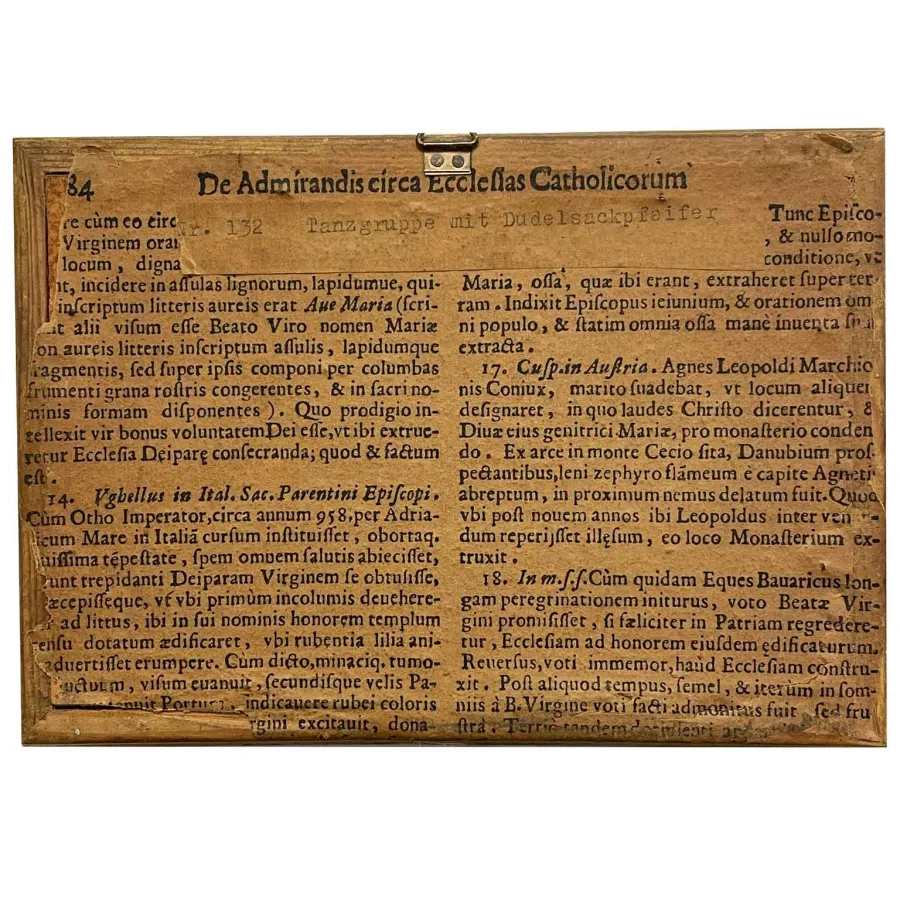 84 De Admirandis circa Ecclesias Catholicorum
re cùm eo circ
Virginem orat
locum, digna
Nr. 132 Tanzgruppe mit Dudelsackpfeifer
nt, incidere in aſſulas lignorum, lapidumue, qui-
inſcriptum litteris aureis erat Aue Maria (ſcri-
alii viſum eſſe Beato Viro nomen Mariæ
on aureis litteris inſcriptum aſſulis, lapidumque
ragmentis, ſed ſuper ipſis componi per columbas
frumenti grana roſtris congerentes, & in ſacri no-
minis formam diſponentes). Quo prodigio in-
tellexit vir bonus voluntatem Dei eſſe, vt ibi extrue-
retur Eccleſia Deiparę conſecranda; quod & factum
eſt.
14. Vghellus in Ital. Sac. Parentini Epiſcopi.
Cùm Otho Imperator, circa annum 958, per Adria-
ticum Mare in Italiã curſum inſtituiſſet, obortaq.
uiſſima tẽpeſtate, ſpem omnem ſalutis abieciſſet,
unt trepidanti Deiparam Virginem ſe obtuliſſe,
æcepiſſeque, vt vbi primùm incolumis deuehere-
ad littus, ibi in ſui nominis honorem templum
enſu dotatum ædificaret, vbi rubentia lilia ani-
aduertiſſet erumpere. Cùm dicto, minaciq. tumo-
uctuum, viſum euanuit, ſecundiſque velis Pa-
tenuit Portum, indicauere rubei coloris
rgini excitauit, dona-
Tunc Epiſco-
, & nullo mo-
conditione, vt
Maria, oſſa, quæ ibi erant, extraheret ſuper ter-
ram. Indixit Epiſcopus ieiunium, & orationem om
ni populo, & ſtatim omnia oſſa manè inuenta
extracta.
17. Cuſp. in Auſtria. Agnes Leopoldi Marchio
nis Coniux, marito ſuadebat, vt locum aliquem
deſignaret, in quo laudes Chriſto dicerentur, &
Diuæ eius genitrici Mariæ, pro monaſterio conden
do. Ex arce in monte Cecio ſita, Danubium proſ-
pectantibus, leni zephyro flãmeum è capite Agneti
abreptum, in proximum nemus delatum fuit. Quod
vbi poſt nouem annos ibi Leopoldus inter ven
dum reperijſſet illęſum, eo loco Monaſterium ex-
truxit.
18. In m.ſ.ſ. Cùm quidam Eques Bauaricus lon-
gam peregrinationem initurus, voto Beatæ Vir-
gini promiſiſſet, ſi fæliciter in Patriam regredere-
tur, Eccleſiam ad honorem eiuſdem ędificaturum.
Reuerſus, voti immemor, haùd Eccleſiam conſtru-
xit. Poſt aliquod tempus, ſemel, & iterùm in ſom-
niis à B. Virgine voti facti admonitus fuit, ſed fru
ſtrà. Tertiò tandem dormienti